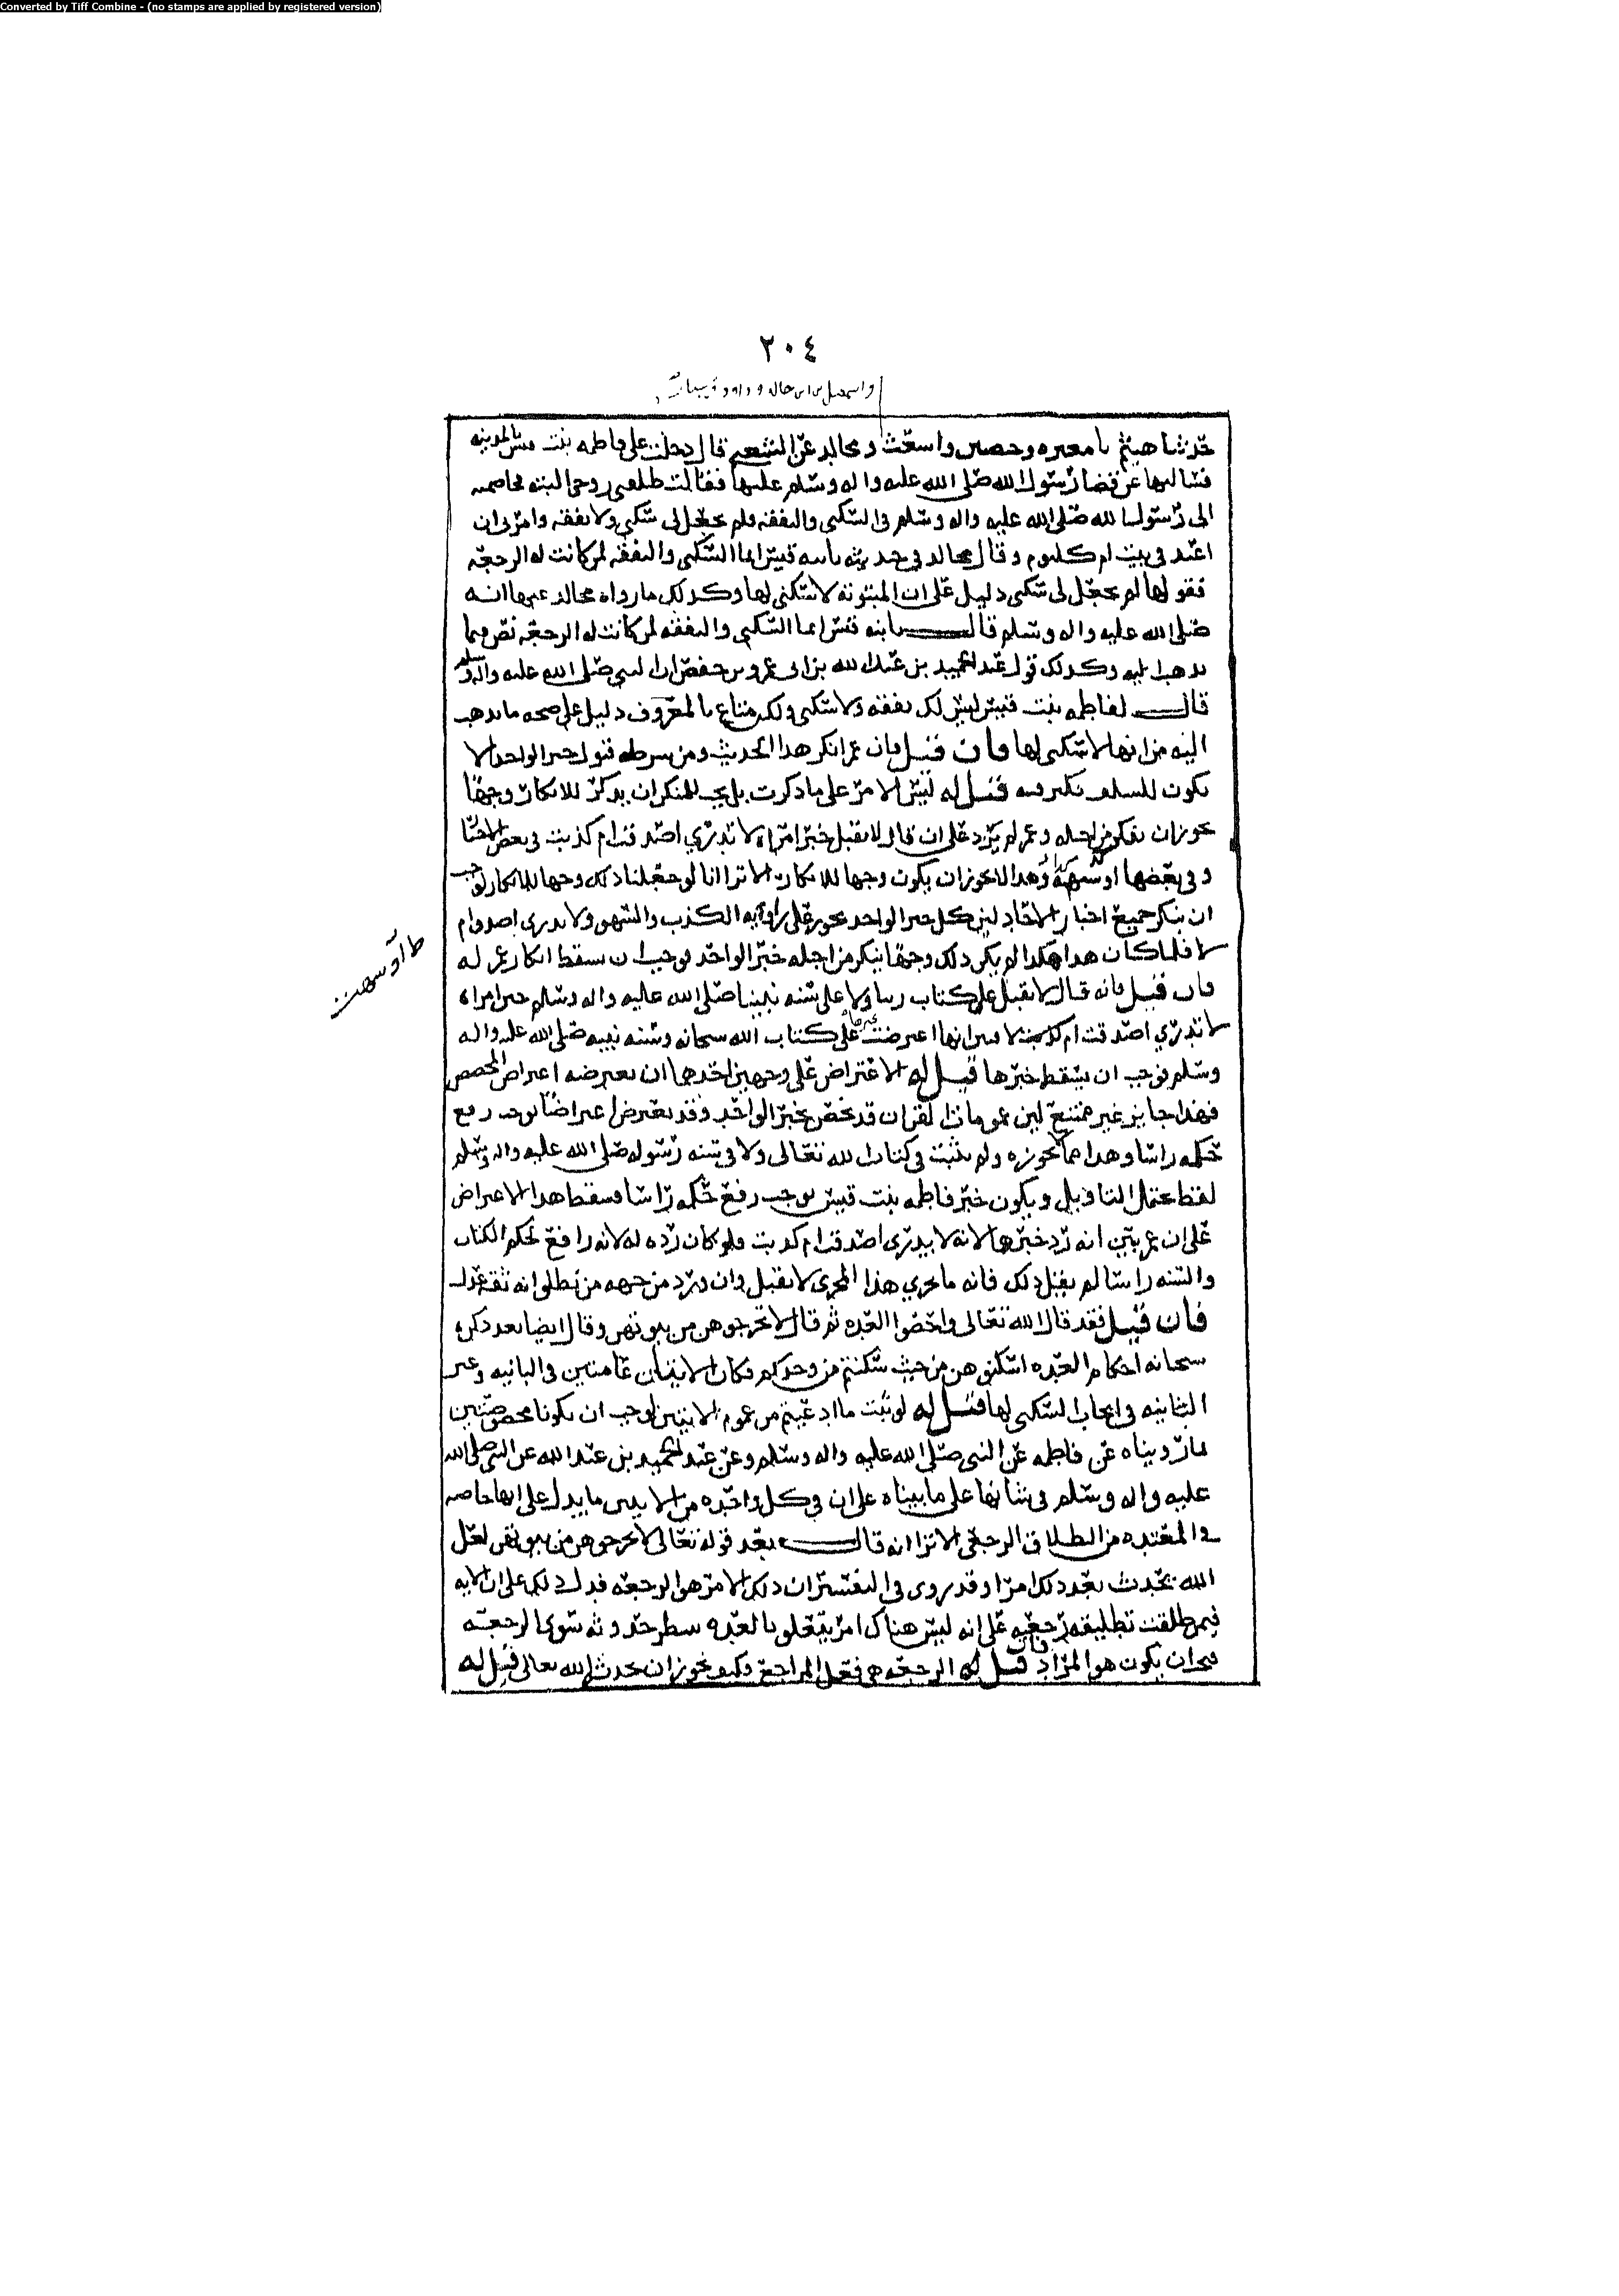 Converted by Tiff Combine - (no stamps are applied by registered version)
٢٠٤
واسمعيل بن ابي خالد وداود وسيار
حدثنا هشيم نا مغيره وحصين واشعث ومجالد عن الشعبي قال دخلت على فاطمه بنت قيس بالمدينه
فسالتها عن قضا رسول الله صلى الله عليه واله وسلم عليها فقالت طلقني زوجي البته فخاصمته
الى رسول الله صلى الله عليه واله وسلم في السكنى والنفقه فلم يجعل لي سكنى ولا نفقه وامرني ان
اعتد في بيت ام كلثوم وقال مجالد في حديثه يابنه قيس انما السكنى والنفقه لمن كانت له الرجعه
فقولها لم يجعل لي سكنى دليل على ان المبتوته لا سكنى لها وكذلك ما رواه مجالد عنها انه
صلى الله عليه واله وسلم قال يابنه قيس انما السكنى والنفقه لمن كانت له الرجعه نص فيما
نذهب اليه وكذلك قول عبد الحميد بن عبد الله بن ابي عمرو بن حفص ان النبي صلى الله عليه واله وسلم
قال لفاطمه بنت قيس ليس لك نفقه ولا سكنى ولكن متاع بالمعروف دليل على صحه ما نذهب
اليه من انها لا سكنى لها فان قيل فان عمر انكر هذا الحديث ومن شرطه قبول خبر الواحد الا
يكون للسلف نكير فيه قيل له ليس الامر على ما ذكرت بل يجب للمنكر ان يذكر للانكار وجها
يجوز ان ينكر من اجله وعمر لم يزد على ان قال لا نقبل خبر امراه لا تدري اصدقت ام كذبت في بعض الاخبار
وفي بعضها او شبهه وهذا لا يجوز ان يكون وجها للانكار الا ترا انا لو جعلنا ذلك وجها للانكار لوجب
ان ننكر جميع اخبار الاحاد لان كل خبر الواحد يجوز على راويه الكذب والسهو ولا يدرى اصدق ام
لا فلما كان هذا هكذا لم يكن ذلك وجها ينكر من اجله خبر الواحد فوجب ان يسقط انكار عمر له
فان قيل فانه قال لا نقبل على كتاب ربنا ولا على سنه نبينا صلى الله عليه واله وسلم خبر امراه
لا تدري اصدقت ام كذبت انها اعترضت على كتاب الله سبحانه وسنه نبيه صلى الله عليه واله
وسلم فوجب ان يسقط خبرها قيل له الاعتراض على وجهين احدهما ان يعترضه اعتراض المخصص
فهذا جايز غير ممتنع لان عموم القران قد يخص بخبر الواحد وقد يعترض اعتراضا يوجب رفع
حكمه راسا وهذا مما لا نجوزه ولم يثبت في كتاب الله تعالى ولا في سنه رسوله صلى الله عليه واله وسلم
لفظ يحتمل التاويل ويكون خبر فاطمه بنت قيس يوجب رفع حكمه راسا فسقط هذا الاعتراض
على ان عمر بين انه رد خبرها لانه لا يدري اصدقت ام كذبت فلو كان رده له لانه رافع لحكم الكتاب
والسنه راسا لم يقل ذلك فانه ما يجري هذا المجرى لا يقبل وان ورد من جهه من يظن انه ثقه عدل
فان قيل فقد قال الله تعالى واحصوا العده ثم قال لا تخرجوهن من بيوتهن وقال ايضا بعد ذكره
سبحانه احكام العده اسكنوهن من حيث سكنتم من وجدكم فكان الايتان عامتين في الباينه وغير
الباينه في ايجاب السكنى لها قيل له لو ثبت ما ادعيتم من عموم الايتين لوجب ان يكونا مخصوصتين
لما رويناه عن فاطمه عن النبي صلى الله عليه واله وسلم وعن عبد الحميد بن عبد الله عن النبي صلى الله
عليه واله وسلم في شانها على ما بيناه على ان في كل واحده من الايتين ما يدل على انها خاصه
في المعتده من الطلاق الرجعي الا ترا انه قال بعد قوله تعالى لا تخرجوهن من بيوتهن لعل
الله يحدث بعد ذلك امرا وقد روي في التفسير ان ذلك الامر هو الرجعه فدل ذلك على ان الايه
فيمن طلقت تطليقه رجعيه على انه ليس هناك امر يتعلق بالعده ينتظر حدوثه سوى الرجعه
فيجب ان يكون هو المراد فان قيل له الرجعه هي فعل المراجع وكيف يجوز ان يحدثه الله تعالى قيل له